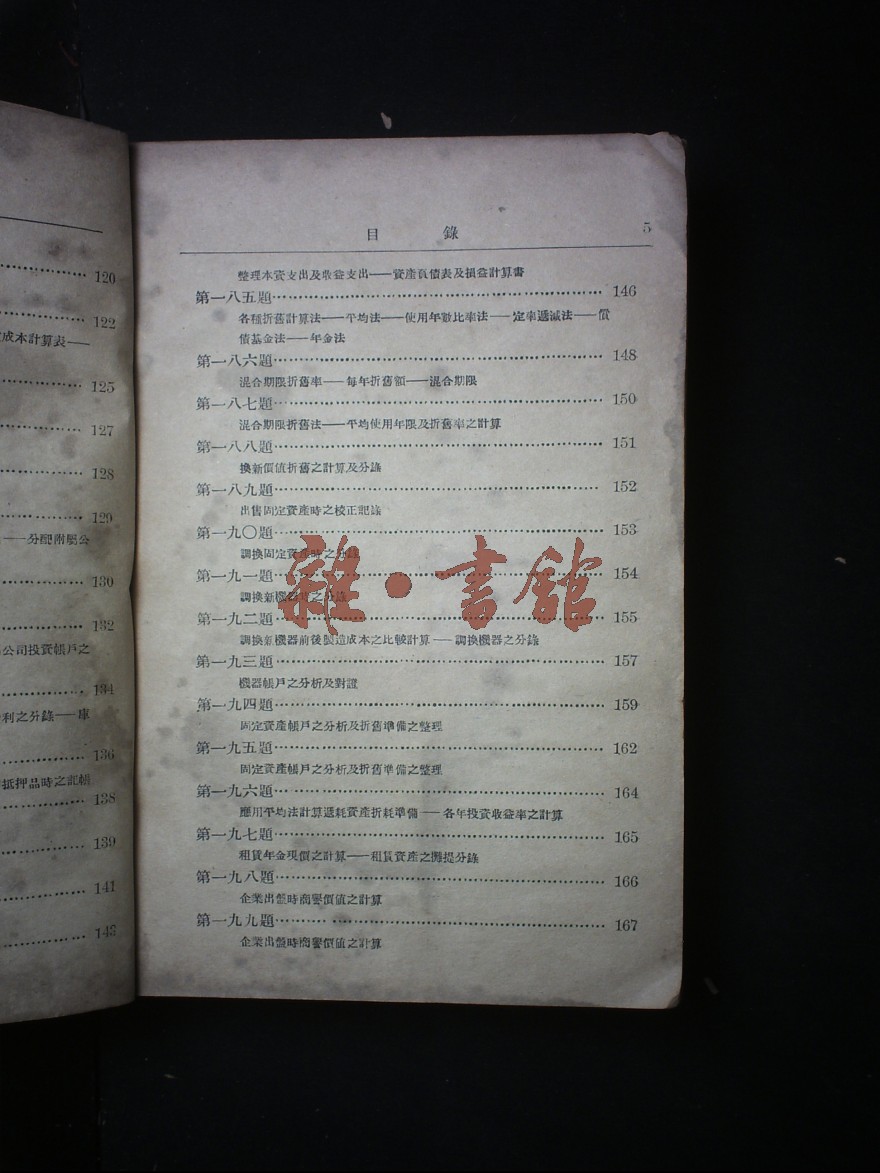 120
122
成本計算表——
125
127
128
129
——分配附屬公
130
132
公司投資帳戶之
134
利之分錄——庫
136
抵押品時之記帳
138
139
141
143
目 錄 5
整理本資支出及收益支出——資產負債表及損益計算書
第一八五題 146
各種折舊計算法——平均法——使用年數比率法——定率遞減法——償
債基金法——年金法
第一八六題 148
混合期限折舊率——每年折舊額——混合期限
第一八七題 150
混合期限折舊法——平均使用年限及折舊率之計算
第一八八題 151
換新價值折舊之計算及分錄
第一八九題 152
出售固定資產時之校正記錄
第一九〇題 153
調換固定資產時之分錄
第一九一題 154
調換新機器時之分錄
第一九二題 155
調換新機器前後製造成本之比較計算——調換機器之分錄
第一九三題 157
機器帳戶之分析及對證
第一九四題 159
固定資產帳戶之分析及折舊準備之整理
第一九五題 162
固定資產帳戶之分析及折舊準備之整理
第一九六題 164
應用平均法計算遞耗資產折耗準備——各年投資收益率之計算
第一九七題 165
租賃年金現價之計算——租賃資產之攤提分錄
第一九八題 166
企業出盤時商譽價值之計算
第一九九題 167
企業出盤時商譽價值之計算
雜·書館